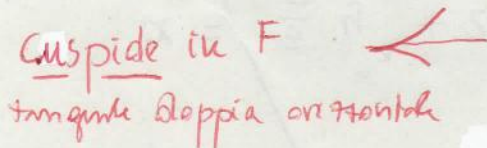 cuspide in F
tangente doppia orizzontale